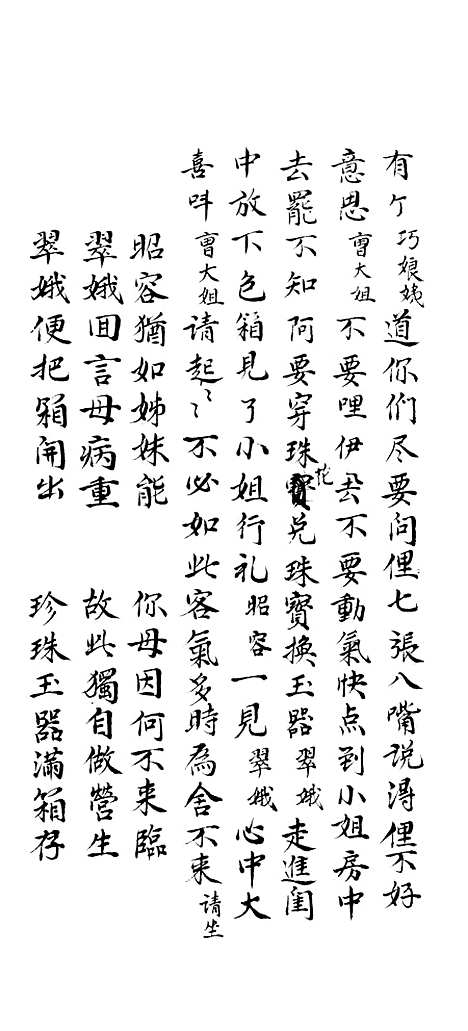 有个巧娘姨道你们尽要问俚七張八嘴说淂俚不好
意思曹大姐不要哩伊去不要動氣快点到小姐房中
去罷不知阿要穿珠花兑珠寳換玉器翠娥走進闺
中放下色箱見了小姐行礼昭容一見翠娥心中大
喜呌曹大姐请起〻〻不必如此客氣多時為舍不来请坐
昭容猶如姊妹能　你母因何不来臨
翠娥囬言母病重　故此獨自做營生
翠娥便把箱開出　珍珠玉器满箱存